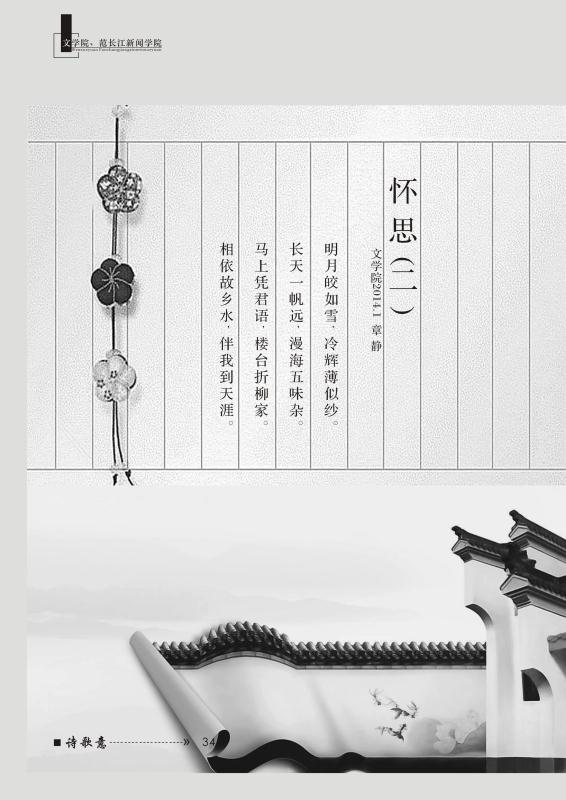 文学院、范长江新闻学院
怀思(二)
文学院2014.1 章 静
明月皎如雪，冷辉薄似纱。
长天一帆远，漫海五味杂。
马上凭君语，楼台折柳家。
相依故乡水，伴我到天涯。
■ 诗歌意 » 34